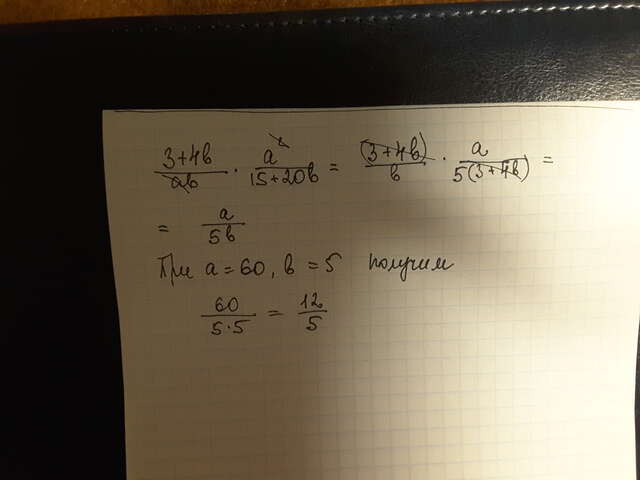 (3+4b)/(ab) · a²/(15+20b) = (3+4b)/b · a/(5(3+4b)) =
= a/(5b)
При a = 60, b = 5 получим
60/(5·5) = 12/5